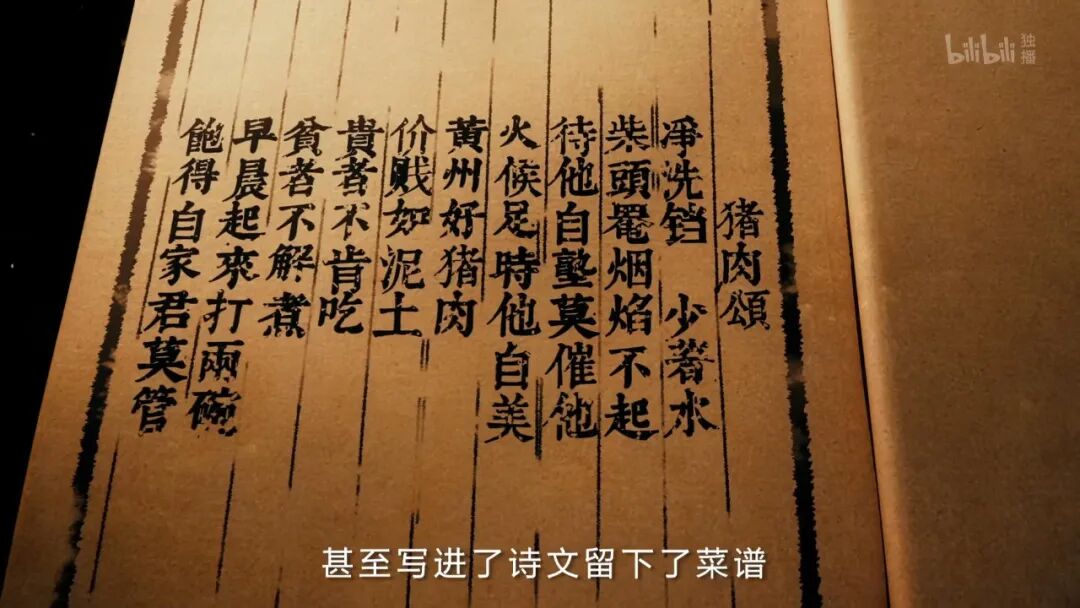 猪肉頌
净洗铛 少著水
柴頭罨烟焰不起
待他自塾莫催他
火候足時他自美
黄州好猪肉
价贱如泥土
貴者不肯吃
貧者不解煮
早晨起來打兩碗
飽得自家君莫管
甚至写进了诗文留下了菜谱
bilibili 独播